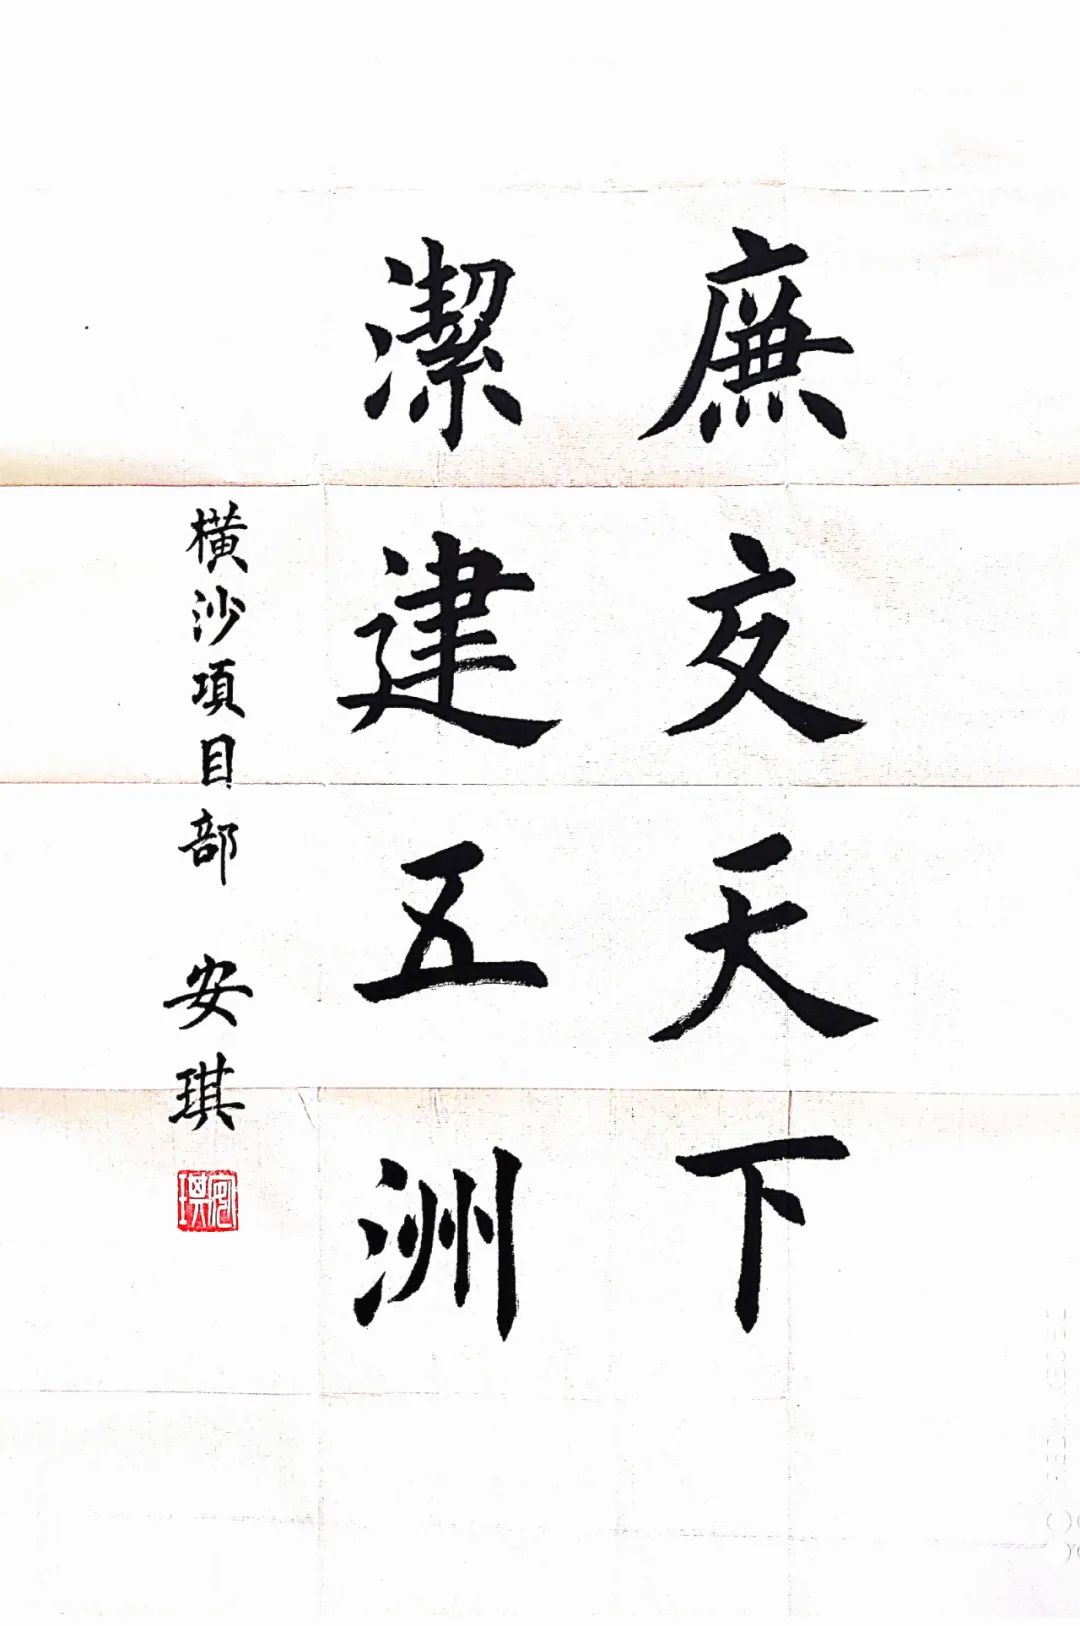 廉交天下
潔建五洲
橫沙項目部 安琪
安琪